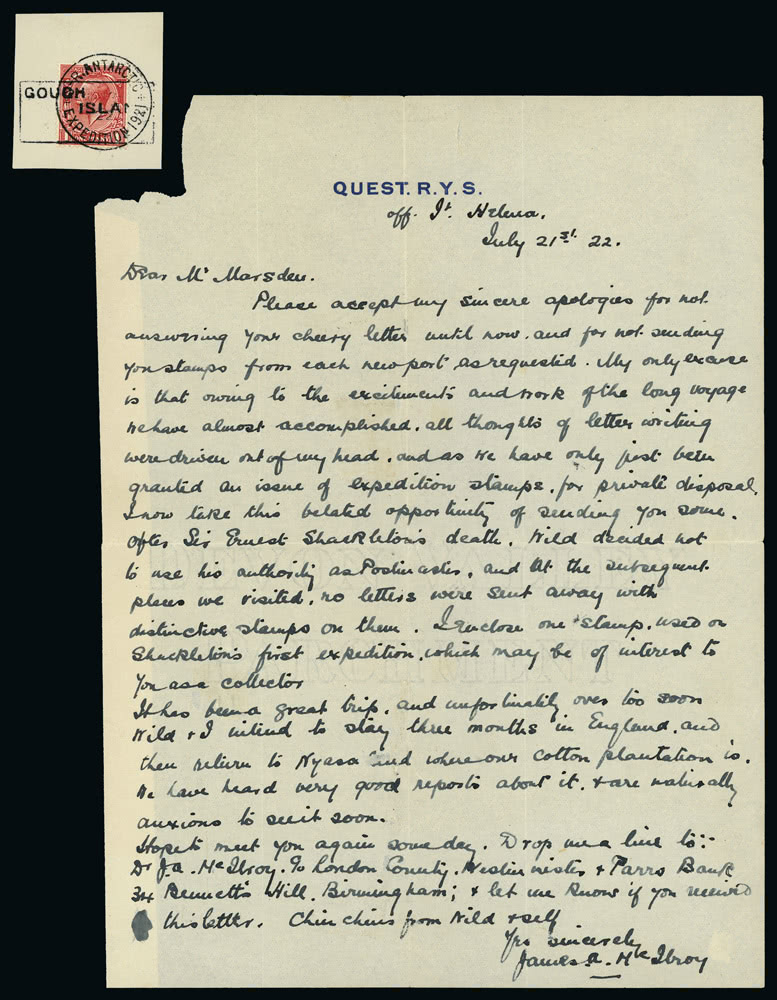 GOUGH
ISLAN
ANTARCTIC
EXPEDITION 1921
QUEST. R.Y.S.
off. St. Helena.
July 21st. 22.
Dear Mr Marsden.
Please accept my sincere apologies for not
answering your cheery letter until now. and for not sending
you stamps from each new port, as requested. My only excuse
is that owing to the excitements and work of the long voyage
we have almost accomplished, all thoughts of letter writing
were driven out of my head, and as we have only just been
granted an issue of expedition stamps, for private disposal,
I now take this belated opportunity of sending you some.
After Sir Ernest Shackleton's death, Wild decided not
to use his authority as Postmaster, and at the subsequent
places we visited, no letters were sent away with
distinctive stamps on them. I enclose one stamp, used on
Shackleton's first expedition, which may be of interest to
you as a collector
It has been a great trip, and unfortunately over too soon
Wild & I intend to stay three months in England, and
then return to Nyasaland where our cotton plantation is.
We have heard very good reports about it, & are naturally
anxious to see it soon.
Hope to meet you again some day. Drop me a line to:-
Dr J.A. McIlroy. c/o London County, Westminister & Parrs Bank
34 Bennetts Hill. Birmingham; & let me know if you received
this letter. Chin chins from Wild & self
Yrs sincerely
James A. McIlroy